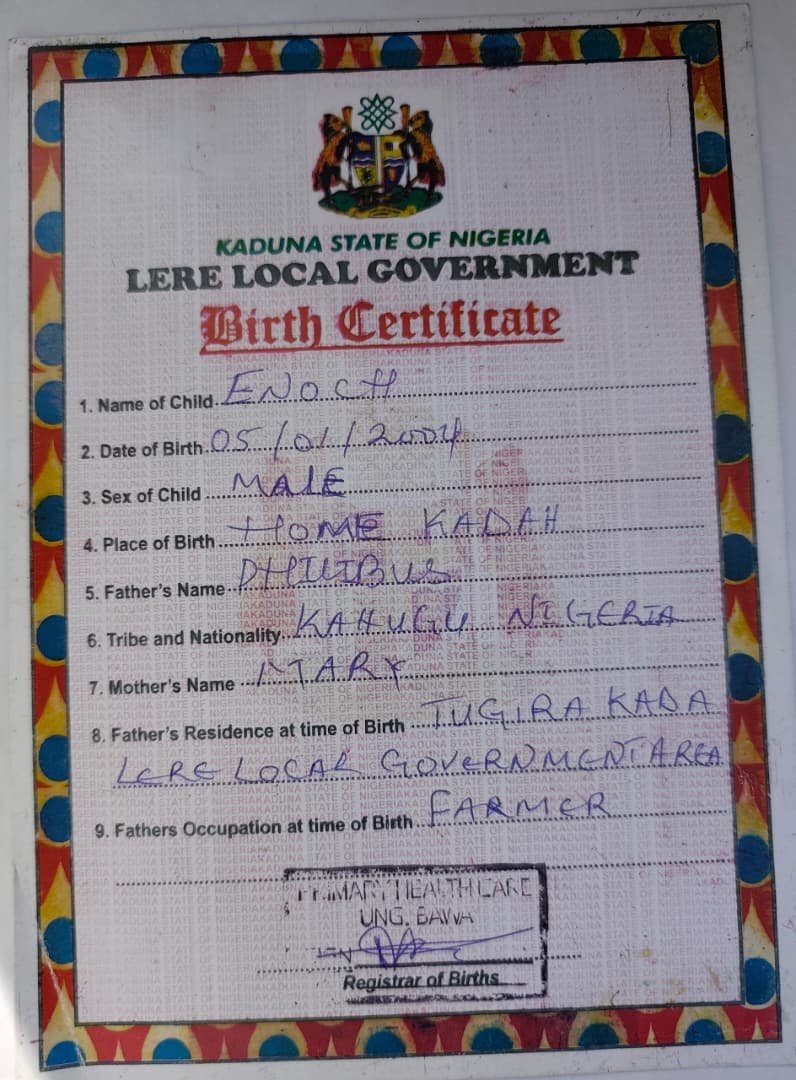 KADUNA STATE OF NIGERIA
LERE LOCAL GOVERNMENT
Birth Certificate
1. Name of Child ENOCH
2. Date of Birth 05/01/2004
3. Sex of Child MALE
4. Place of Birth HOME KADAH
5. Father's Name PHILIBUS
6. Tribe and Nationality KAHUGU NIGERIA
7. Mother's Name MARY
8. Father's Residence at time of Birth TUGIRA KADA
LERE LOCAL GOVERNMENT AREA
9. Fathers Occupation at time of Birth FARMER
PRIMARY HEALTH CARE
UNG. BAWA
Registrar of Births